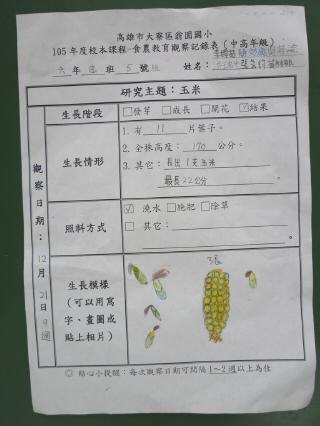 高雄市大寮區翁園國小
105 年度校本課程-食農教育觀察記錄表(中高年級)
六 年 班 5 號 姓名:
研究主題:玉米
觀察日期:12月21日9週
生長階段 □發芽 □成長 □開花 ☑結果
生長情形 1. 有 11 片葉子。
2. 全株高度: 170 公分。
3. 其它: 長出1支玉米
最長22公分
照料方式 ☑ 澆水 □施肥 □除草
□ 其它: 。
生長模樣
(可以用寫
字、畫圖或
貼上相片)
◎ 貼心小提醒:每次觀察日期可間隔 1~2 週以上為佳